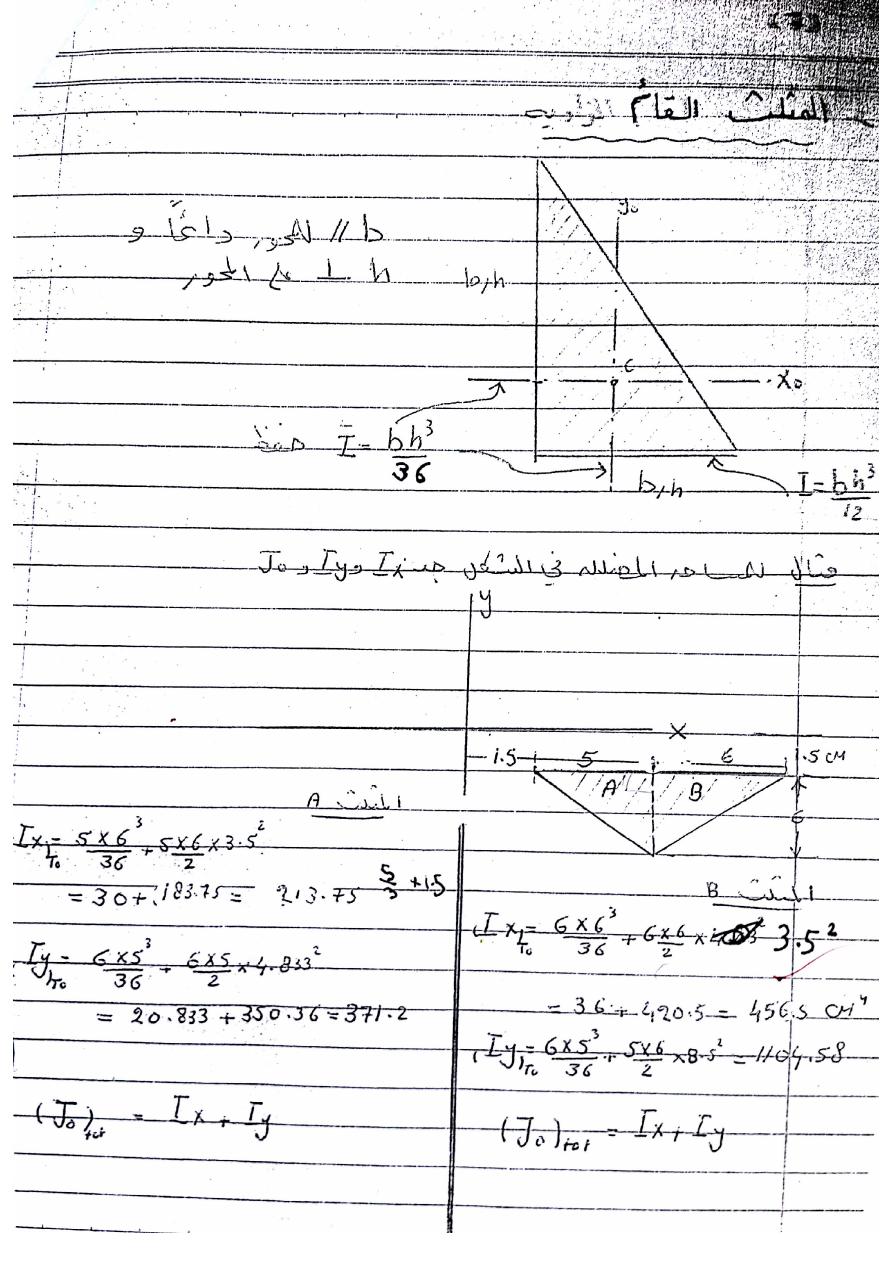 (7)
المثلث القائم الزاويه
b // للمحور دائماً و
h ⊥ على المحور
b,h
y₀
c
X₀
Ī = bh³/36 حفظ
b,h
I = bh³/12
مثال للمساحه المضلله في الشكل جد Ix و Iy و J₀
y
X
1.5 5 6 .5 cm
A B
6
المثلث A
Ix)T₀ = 5×6³/36 + 5×6/2 × 3.5²
= 30 + 183.75 = 213.75
5/3 + 1.5
Iy)T₀ = 6×5³/36 + 6×5/2 × 4.833²
= 20.833 + 350.36 = 371.2
(J₀)tot = Ix + Iy
المثلث B
(Ix)T₀ = 6×6³/36 + 6×6/2 × 3.5²
= 36 + 420.5 = 456.5 cm⁴
(Iy)T₀ = 6×5³/36 + 5×6/2 × 8.5² = 1104.58
(J₀)tot = Ix + Iy